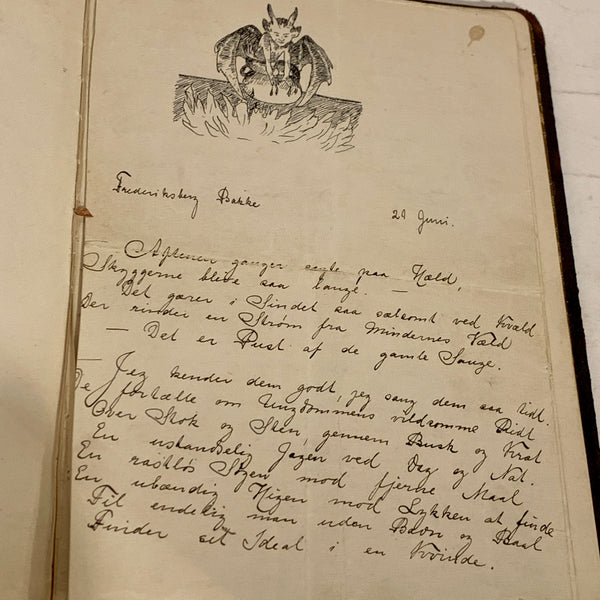 Frederiksberg Bakke
21 Juni.
Aftenen ganger sagte paa Hæld,
Skyggerne blive saa lange. —
Det gærer i Sindet saa sælsomt ved Kvæld
Der rinder en Strøm fra Mindernes Væld
— Det er Pust af de gamle Sange.
— Jeg kender dem godt, jeg sang dem saa tidt.
De fortælle om Ungdommens vildsomme Ridt
Over Stok og Sten, gennem Busk og Krat
En ustandselig Jagen ved Dag og Nat.
En rastløs Stræben mod fjerne Maal
En ubændig Higen mod Lykken at finde
Til endelig man uden Bavn og Baal
Finder sit Ideal i en Kvinde.